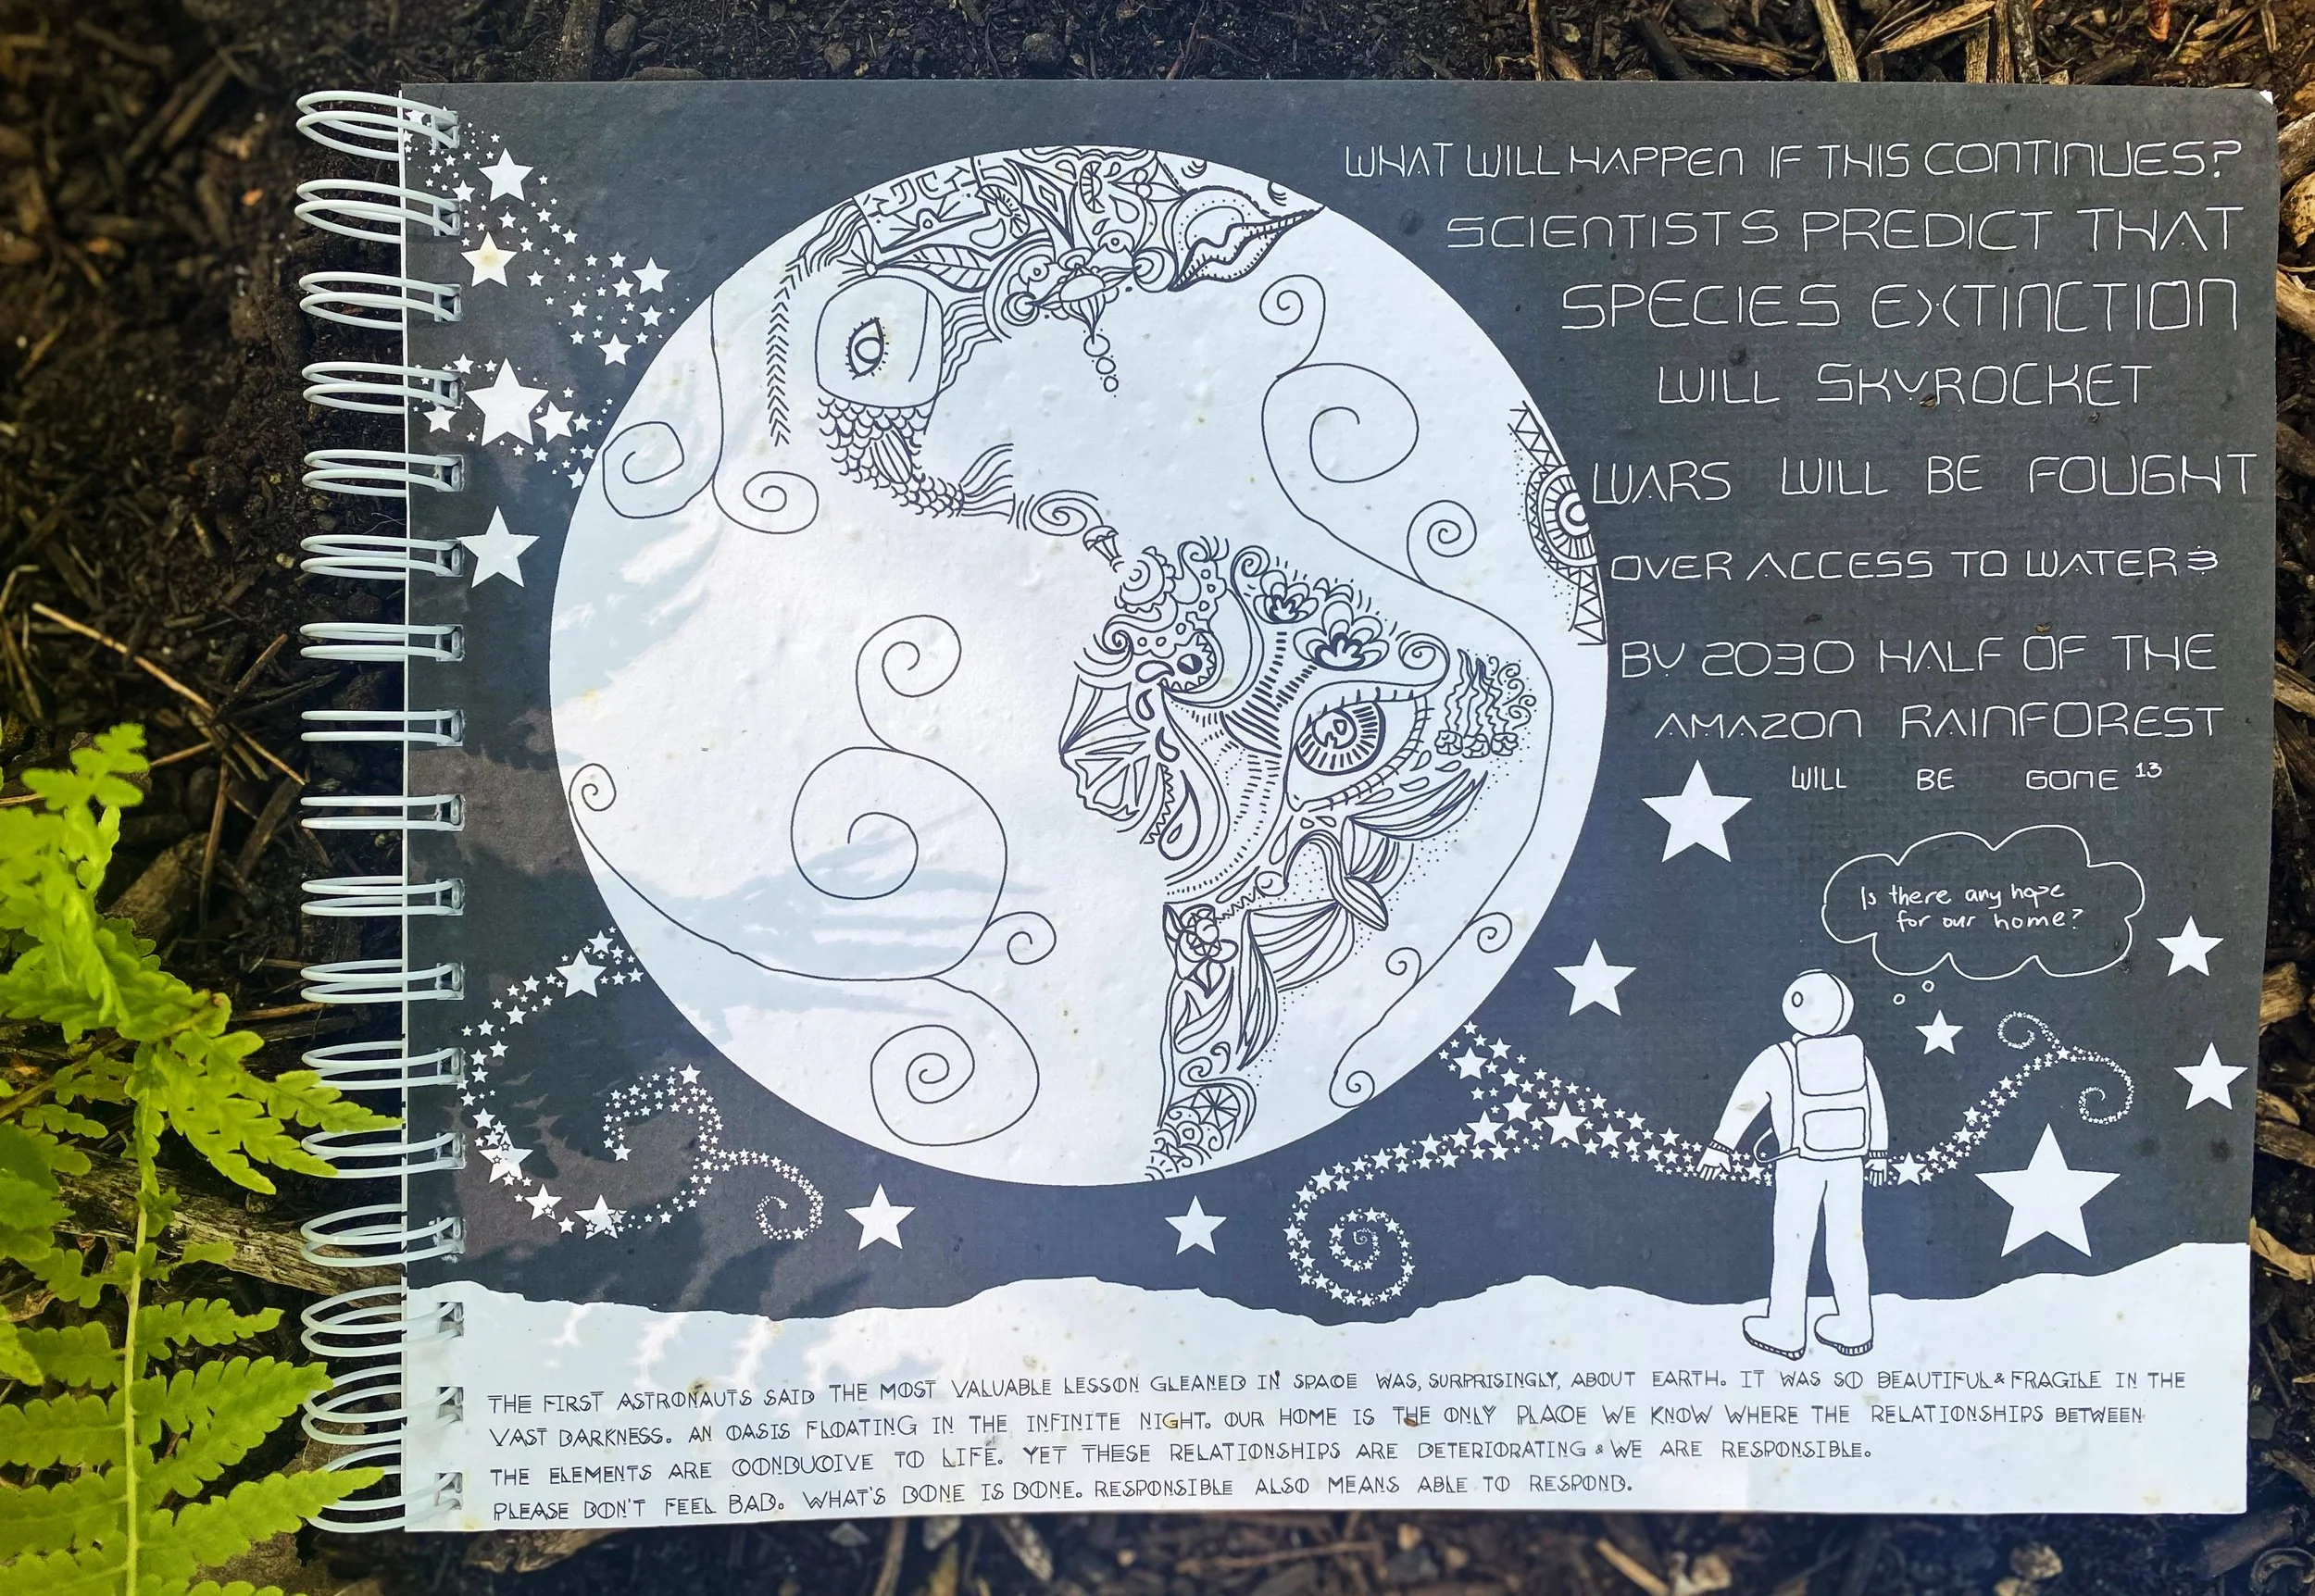 WHAT WILL HAPPEN IF THIS CONTINUES?
SCIENTISTS PREDICT THAT
SPECIES EXTINCTION
WILL SKYROCKET
WARS WILL BE FOUGHT
OVER ACCESS TO WATER &
BY 2030 HALF OF THE
AMAZON RAINFOREST
WILL BE GONE 13
Is there any hope
for our home?
THE FIRST ASTRONAUTS SAID THE MOST VALUABLE LESSON GLEANED IN SPACE WAS, SURPRISINGLY, ABOUT EARTH. IT WAS SO BEAUTIFUL & FRAGILE IN THE
VAST DARKNESS. AN OASIS FLOATING IN THE INFINITE NIGHT. OUR HOME IS THE ONLY PLACE WE KNOW WHERE THE RELATIONSHIPS BETWEEN
THE ELEMENTS ARE CONDUCIVE TO LIFE. YET THESE RELATIONSHIPS ARE DETERIORATING & WE ARE RESPONSIBLE.
PLEASE DON'T FEEL BAD. WHAT'S DONE IS DONE. RESPONSIBLE ALSO MEANS ABLE TO RESPOND.